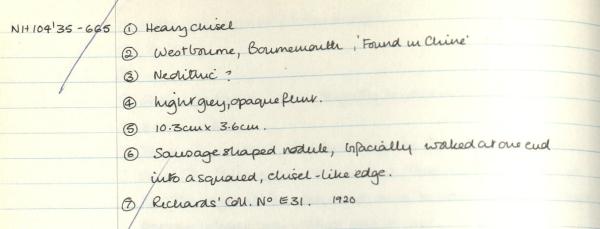 NH104'35-665 ① Heavy chisel
② Westbourne, Bournemouth, 'Found in Chine'
③ Neolithic ?
④ Light grey, opaque flint.
⑤ 10.3cm x 3.6cm.
⑥ Sausage shaped nodule, bifacially worked at one end
into a squared, chisel-like edge.
⑦ Richards' Coll. Nº E31. 1920